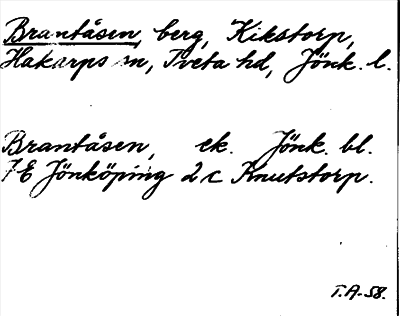 Brantåsen, berg, Kikstorp,
Hakarps sn, Tveta hd, Jönk. l.
Brantåsen, ek. Jönk. bl.
7E Jönköping 2c Knutstorp.
T.A-58.